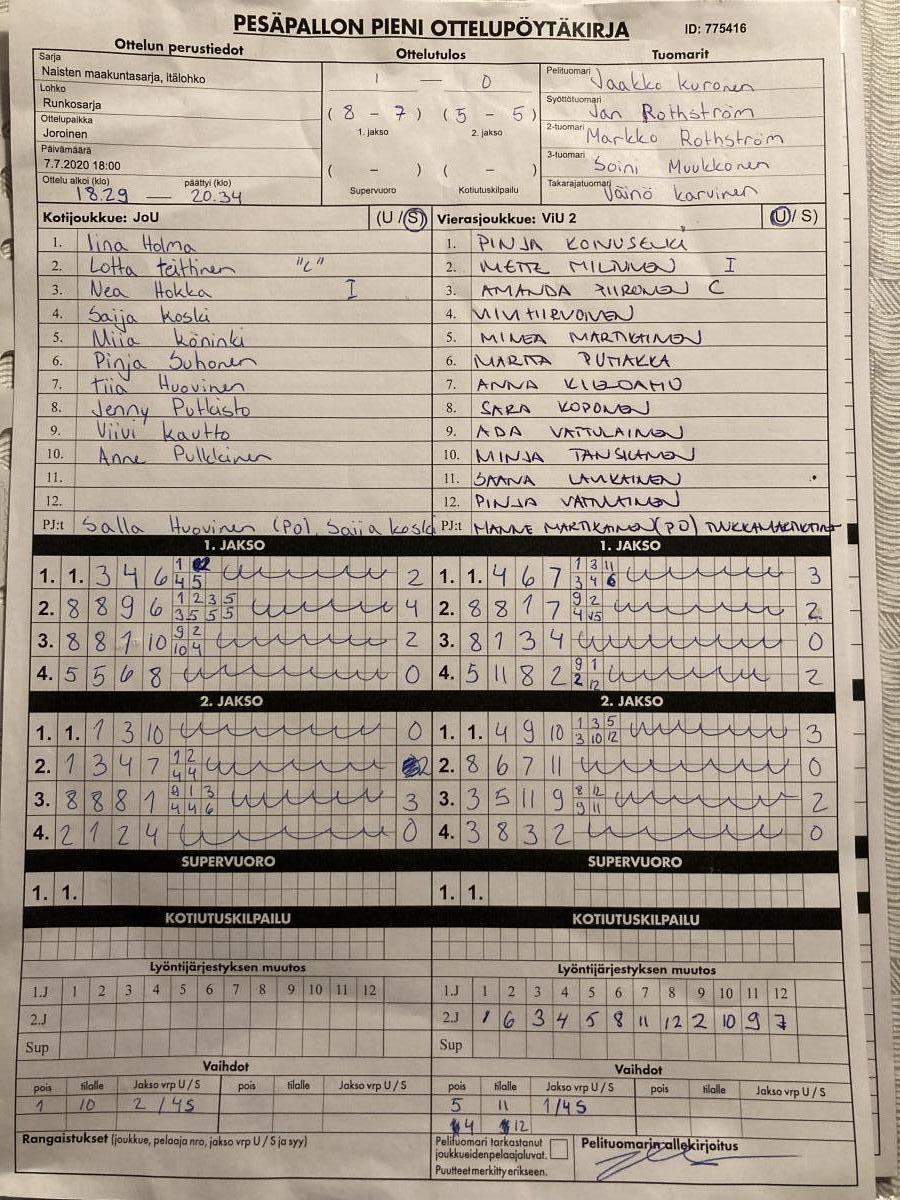 PESÄPALLON PIENI OTTELUPÖYTÄKIRJA ID: 775416
Ottelun perustiedot Ottelutulos Tuomarit
Sarja
Naisten maakuntasarja, itälohko
Lohko
Runkosarja
Ottelupaikka
Joroinen
Päivämäärä
7.7.2020 18:00
Ottelu alkoi (klo) päättyi (klo)
18.29 — 20.34
1 — 0
(8 - 7) (5 - 5)
1. jakso 2. jakso
( - ) ( - )
Supervuoro Kotiutuskilpailu
Pelituomari Jaakko Kuronen
Syöttötuomari Jan Rothström
2-tuomari Markko Rothström
3-tuomari Soini Muukkonen
Takarajatuomari Väinö Karvinen
Kotijoukkue: JoU (U/S)
1. Iina Holma
2. Lotta Teittinen "C"
3. Nea Hokka I
4. Saija Koski
5. Miia Köninki
6. Pinja Suhonen
7. Tiia Huovinen
8. Jenny Putkisto
9. Viivi Kautto
10. Anne Pulkkinen
11.
12.
PJ:t Salla Huovinen (PO), Saija Koski
Vierasjoukkue: ViU 2 (U/S)
1. PINJA
2. METTE I
3. AMANDA PIIRONEN C
4.
5. MINEA MARTIKAINEN
6. MARITA PUHAKKA
7. ANNA
8. SARA KOPONEN
9. ADA VATTULAINEN
10. MINJA TANSKANEN
11. SAANA LAUKAINEN
12. PINJA VATTULAINEN
PJ:t MARTIKAINEN (PO)
1. JAKSO
1. 1. 3 4 6 1 4 5 2
2. 8 8 9 6 1 2 3 5 3 5 5 5 4
3. 8 8 1 10 9 2 10 4 2
4. 5 5 6 8 0
1. JAKSO
1. 1. 4 6 7 1 3 11 3 4 6 3
2. 8 8 1 7 9 2 4 5 2
3. 8 1 3 4 0
4. 5 11 8 2 9 1 2 12 2
2. JAKSO
1. 1. 1 3 10 0
2. 1 3 4 7 1 2 4 4 2
3. 8 8 8 1 9 1 3 4 4 6 3
4. 2 1 2 4 0
2. JAKSO
1. 1. 4 9 10 1 3 5 3 10 12 3
2. 8 6 7 11 0
3. 3 5 11 9 8 12 9 11 2
4. 3 8 3 2 0
SUPERVUORO SUPERVUORO
1. 1. 1. 1.
KOTIUTUSKILPAILU KOTIUTUSKILPAILU
Lyöntijärjestyksen muutos
1.J 1 2 3 4 5 6 7 8 9 10 11 12
2.J
Sup
Lyöntijärjestyksen muutos
1.J 1 2 3 4 5 6 7 8 9 10 11 12
2.J 1 6 3 4 5 8 11 12 2 10 9 7
Sup
Vaihdot
pois tilalle Jakso vrp U / S pois tilalle Jakso vrp U / S
1 10 2 / 4S
Vaihdot
pois tilalle Jakso vrp U / S pois tilalle Jakso vrp U / S
5 11 1/4S
4 12
Rangaistukset (joukkue, pelaaja nro, jakso vrp U / S ja syy)
Pelituomari tarkastanut
joukkueidenpelaajaluvat.
Puutteet merkitty erikseen.
Pelituomarin allekirjoitus